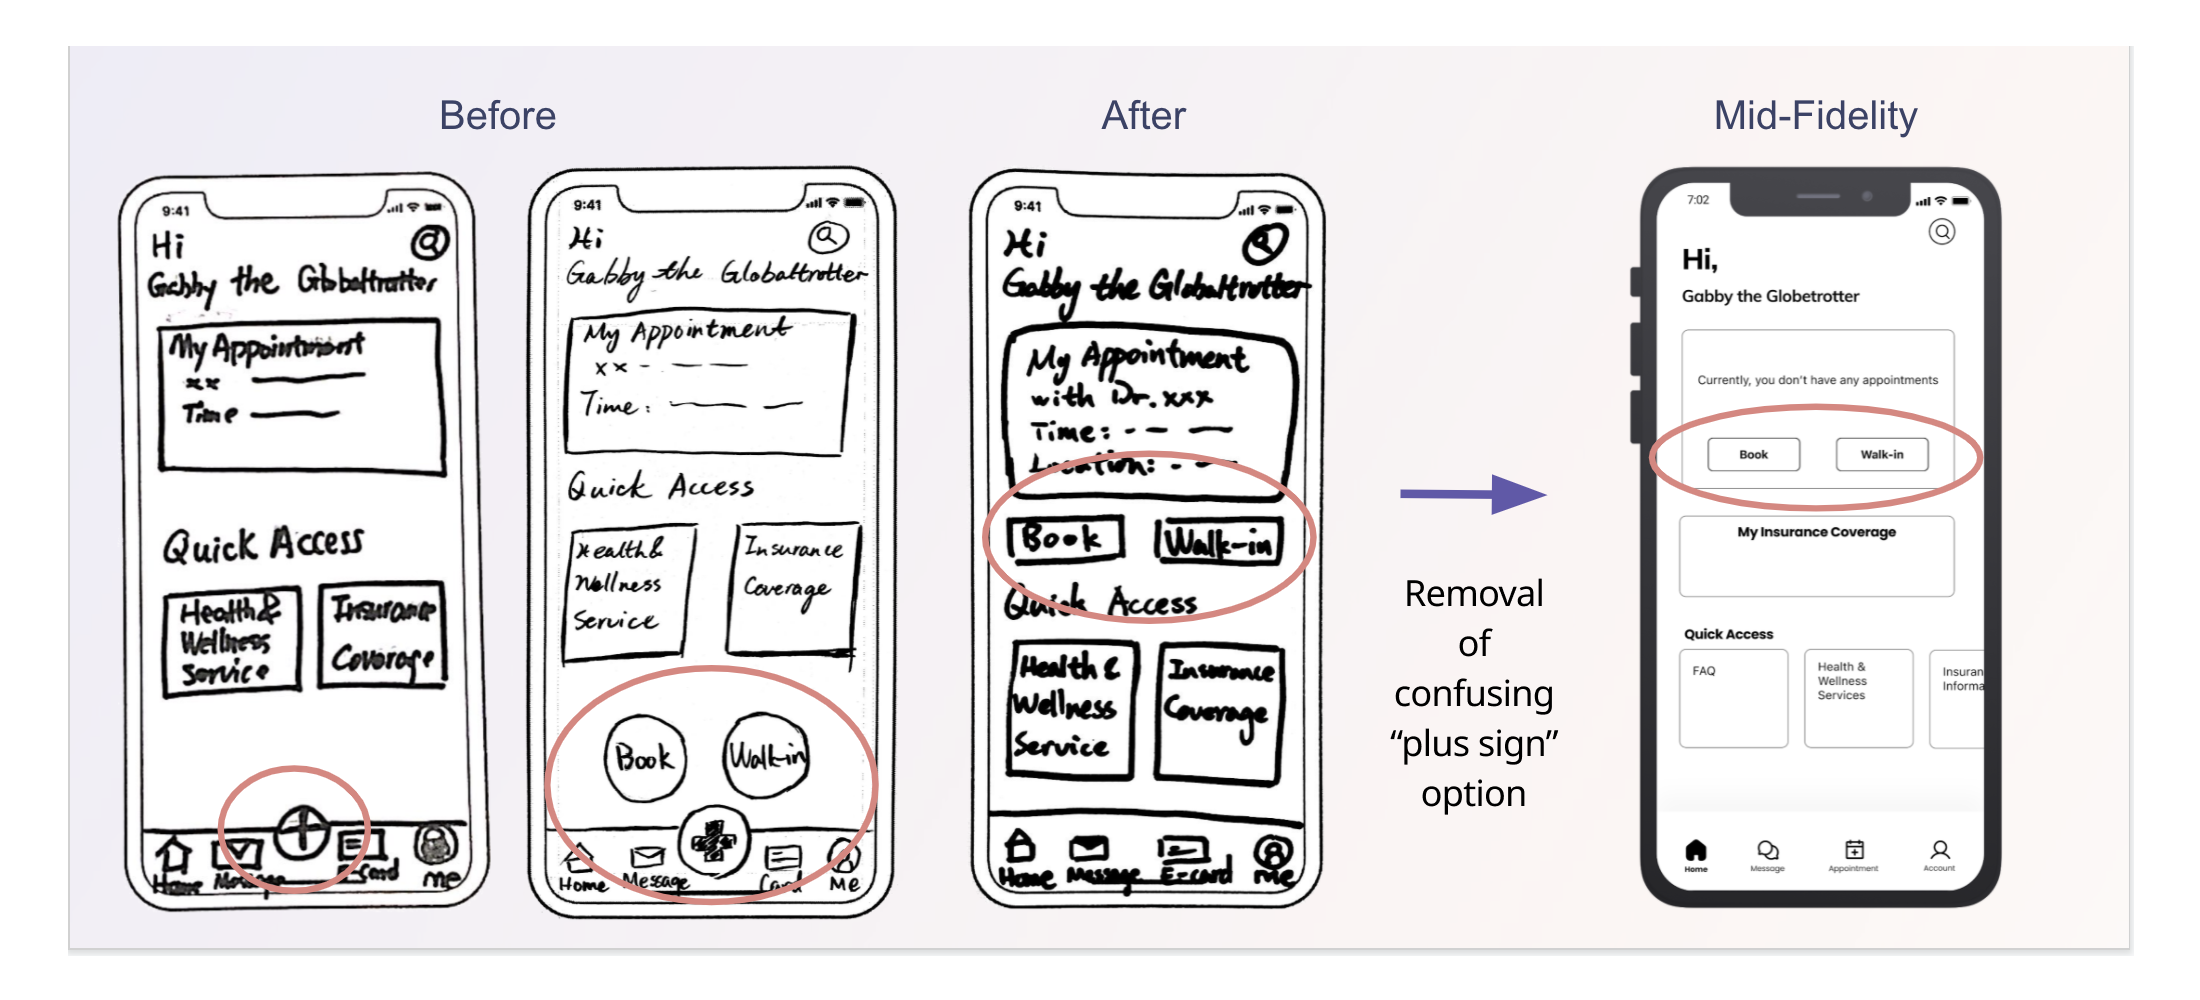 Before
After
Mid-Fidelity
9:41
Hi
Gabby the Globaltrotter
My Appointment
xx
Time
Quick Access
Health &
Wellness
Service
Insurance
Coverage
Home
Message
E-card
me
9:41
Hi
Gabby the Globaltrotter
My Appointment
xx
Time:
Quick Access
Health &
Wellness
Service
Insurance
Coverage
Book
Walk-in
Home
Message
Card
Me
9:41
Hi
Gabby the Globaltrotter
My Appointment
with Dr. xxx
Time:
Location:
Book
Walk-in
Quick Access
Health &
Wellness
Service
Insurance
Coverage
Home
Message
E-card
me
Removal
of
confusing
“plus sign”
option
7:02
Hi,
Gabby the Globetrotter
Currently, you don't have any appointments
Book
Walk-in
My Insurance Coverage
Quick Access
FAQ
Health &
Wellness
Services
Insuran
Informa
Home
Message
Appointment
Account